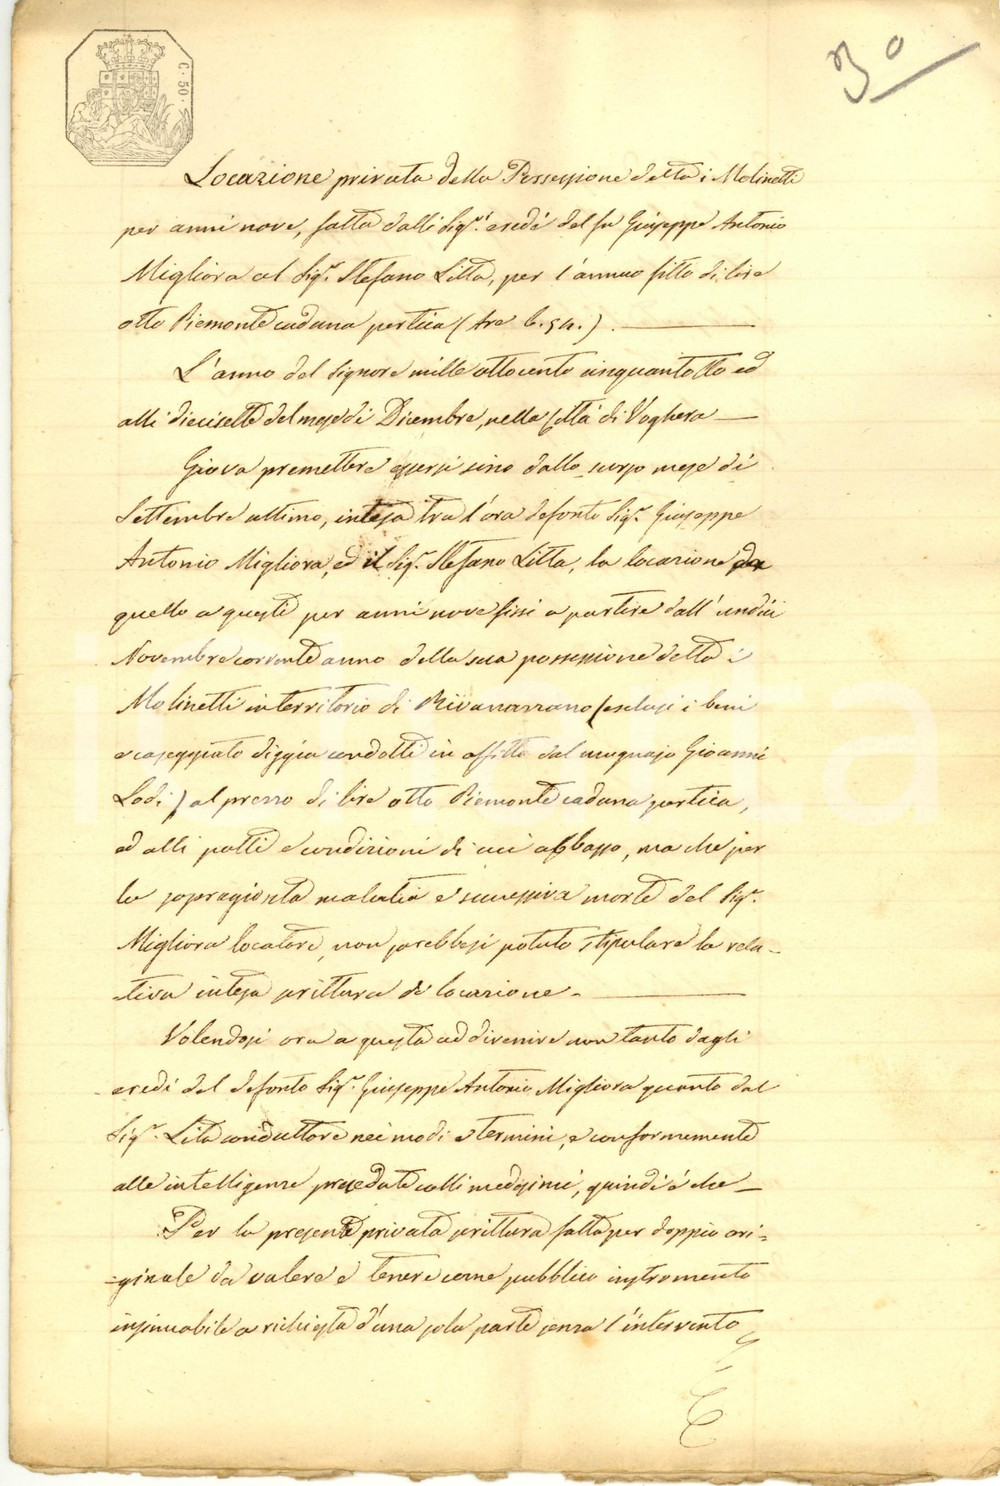 C. 50.
3°
Locazione privata della Possessione detta i Molinetti
per anni nove, fatta dalli Sigri eredi del fu Giuseppe Antonio
Migliora al Sigr. Stefano Litta, per l'annuo fitto di lire
otto Piemonte caduna pertica (Are 6.54.)
L'anno del Signore mille ottocento cinquantotto ed
alli diecisette del mese di Dicembre, nella Città di Voghera
Giova premettere essersi sino dallo scorso mese di
Settembre ultimo, intesa tra l'ora defonto Sigr. Giuseppe
Antonio Migliora, ed il Sigr. Stefano Litta, la locazione da
quello a questi per anni nove fissi a partire dall'undici
Novembre corrente anno della sua possessione detta i
Molinetti in territorio di Rivanazzano (esclusi i beni
e caseggiato diggia condotti in affitto dal mugnajo Gioanni
Lodi) al prezzo di lire otto Piemonte caduna pertica,
ed alli patti e condizioni di cui abbasso, ma che per
la sopragionta malattia e successiva morte del Sigr.
Migliora locatore, non sarebbesi potuto stipulare la rela-
tiva intesa scrittura di locazione.
Volendosi ora a questa addivenire non tanto dagli
eredi del defonto Sigr. Giuseppe Antonio Migliora quanto dal
Sigr. Litta conduttore nei modi e termini, e conformemente
alle intelligenze precedute colli medesimi, quindi è che
Per la presente privata scrittura fatta per doppio ori=
=ginale da valere e tenere come pubblico instromento
insinuabile a richiesta d'una sola parte senza l'intervento